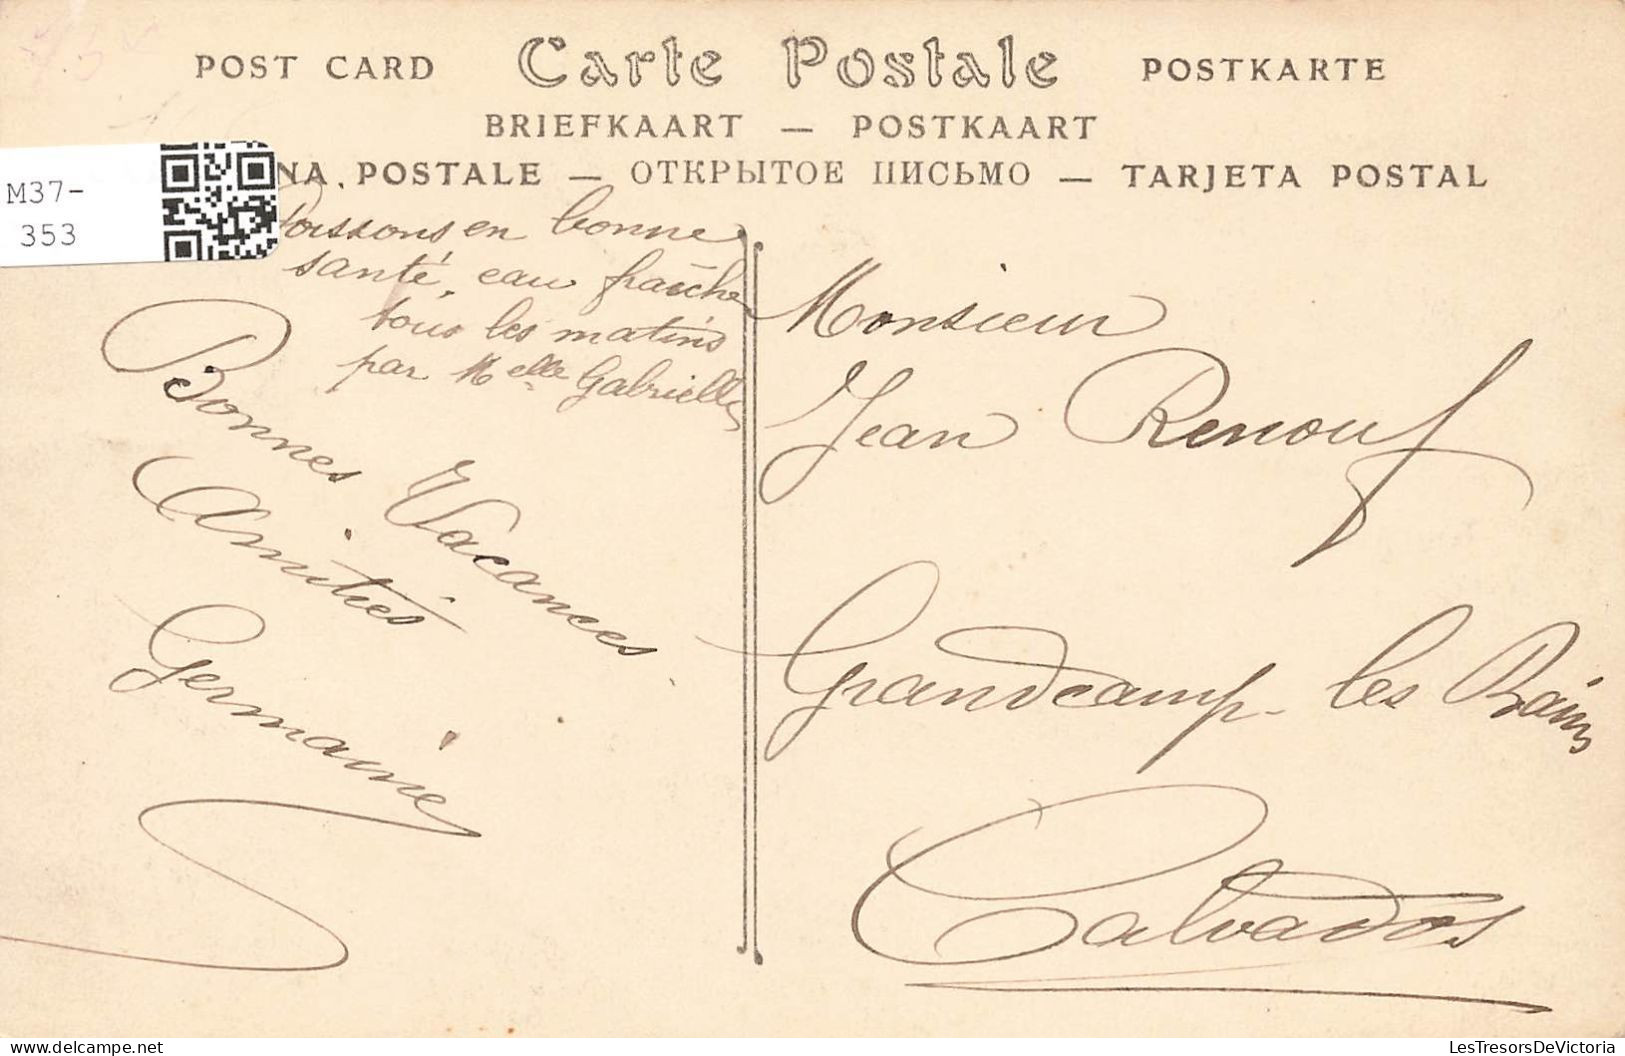 POST CARD Carte Postale POSTKARTE
BRIEFKAART — POSTKAART
NA POSTALE — ОТКРЫТОЕ ПИСЬМО — TARJETA POSTAL
M37-
353
Poissons en bonne
santé, eau fraîche
tous les matins
par Melle Gabrielle
Bonnes Vacances
Amitiés
Germaine
Monsieur
Jean Renouf
Grandcamp-les Bains
Calvados
© les-tresors-de-victoria.com
LesTresorsDeVictoria